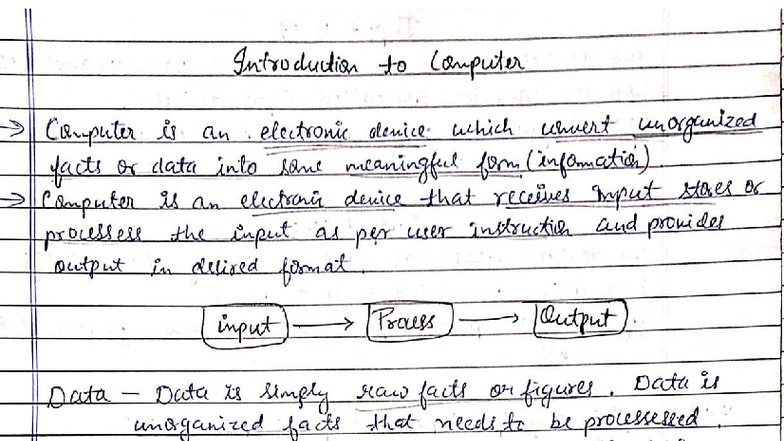 Introduction to Computer
→ Computer is an electronic device which convert unorganized
facts or data into some meaningful form (information).
→ Computer is an electronic device that receives Input stores or
processess the input as per user instruction and provides
output in desired format.
input → Process → Output
Data — Data is simply raw facts or figures. Data is
unorganized facts that needs to be processessed.